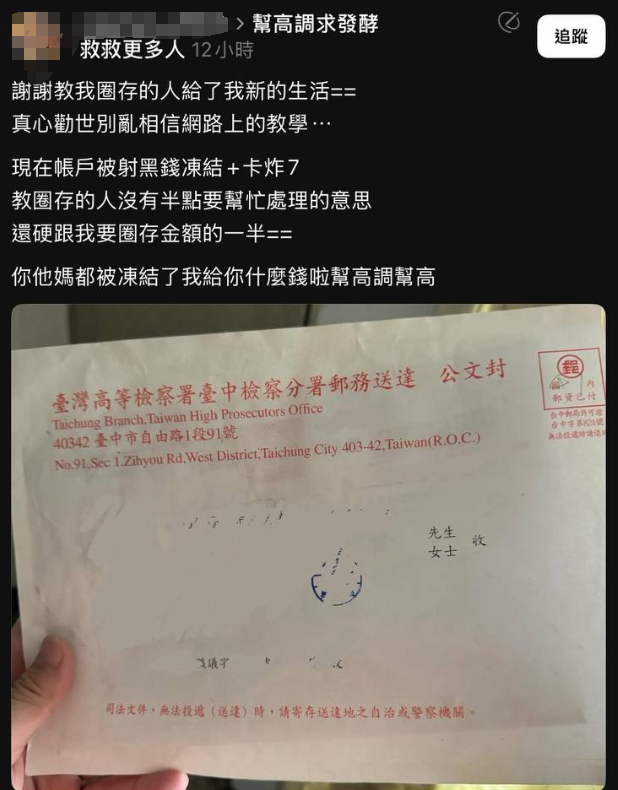 › 幫高調求發酵
救救更多人 12小時
追蹤
謝謝教我圈存的人給了我新的生活==
真心勸世別亂相信網路上的教學…
現在帳戶被射黑錢凍結+卡炸7
教圈存的人沒有半點要幫忙處理的意思
還硬跟我要圈存金額的一半==
你他媽都被凍結了我給你什麼錢啦幫高調幫高
臺灣高等檢察署臺中檢察分署郵務送達 公文封
Taichung Branch,Taiwan High Prosecutors Office
40342 臺中市自由路1段91號
No.91,Sec 1,Zihyou Rd,West District,Taichung City 403-42,Taiwan(R.O.C.)
郵
國 內
郵資已付
台中郵局許可證
台中字第821號
無法投遞時請退回
先生
女士 收
議字
司法文件，無法投遞（送達）時，請寄存送達地之自治或警察機關。